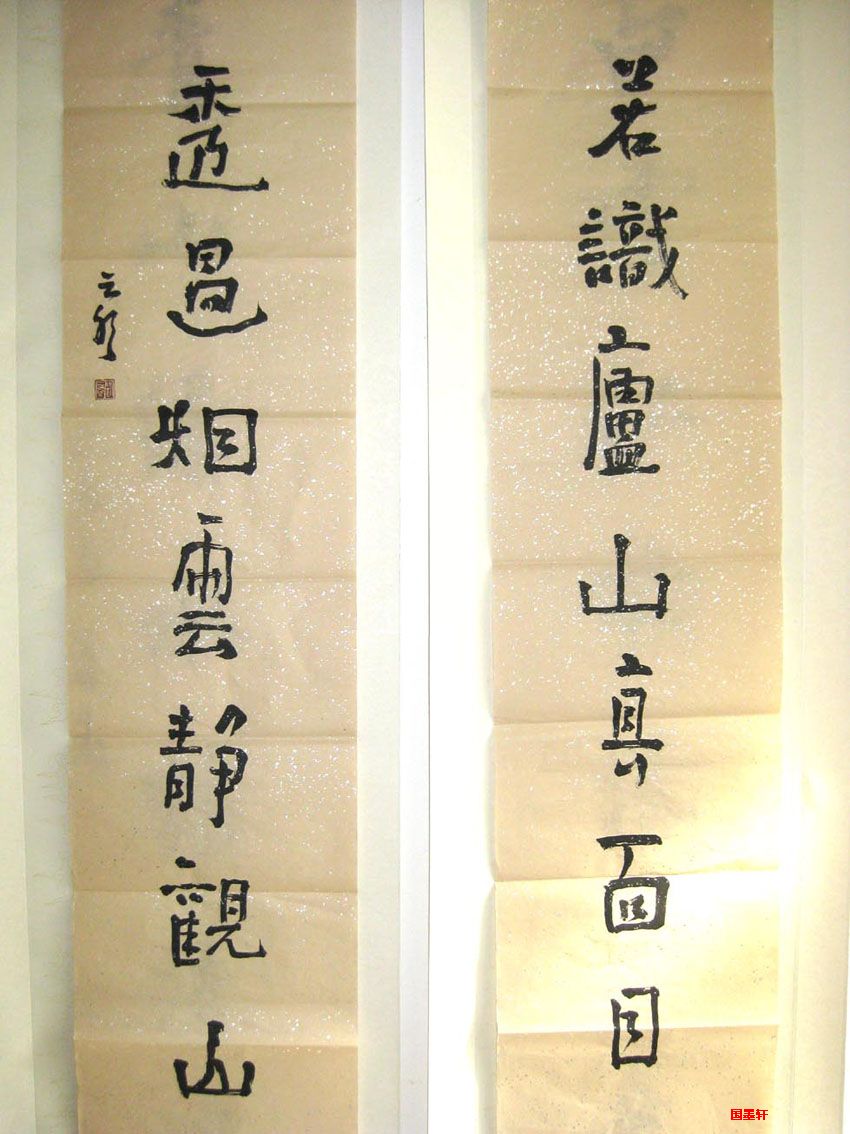 若識廬山真面目
透過烟雲静觀山
国墨轩